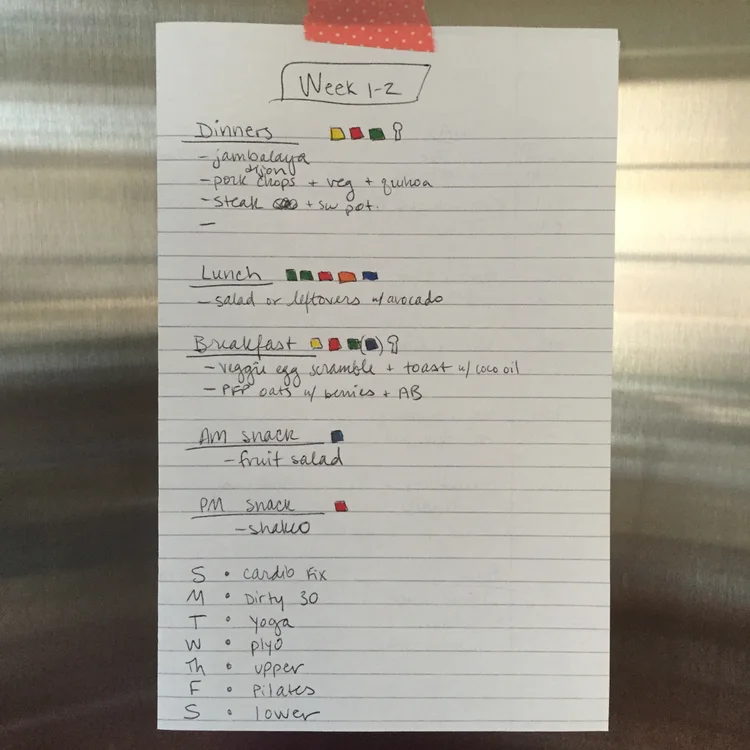 Week 1-2
Dinners
- jambalaya
dijon
- pork chops + veg + quinoa
- steak + sw pot.
-
Lunch
- salad or leftovers w/ avocado
Breakfast ( )
- veggie egg scramble + toast w/ coco oil
- PFP oats w/ berries + AB
AM snack
- fruit salad
PM snack
- shakeo
S • Cardio Fix
M • Dirty 30
T • Yoga
W • plyo
Th • upper
F • Pilates
S • lower